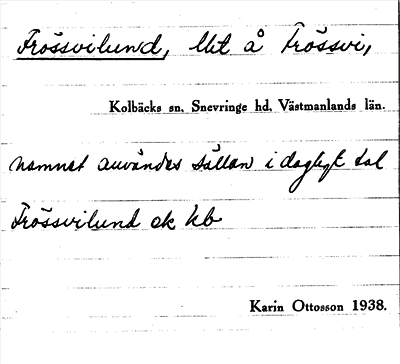 Frössvilund, lht å Frössvi,
Kolbäcks sn, Snevringe hd, Västmanlands län.
namnet användes sällan i dagligt tal
Frössvilund ek kb
Karin Ottosson 1938.